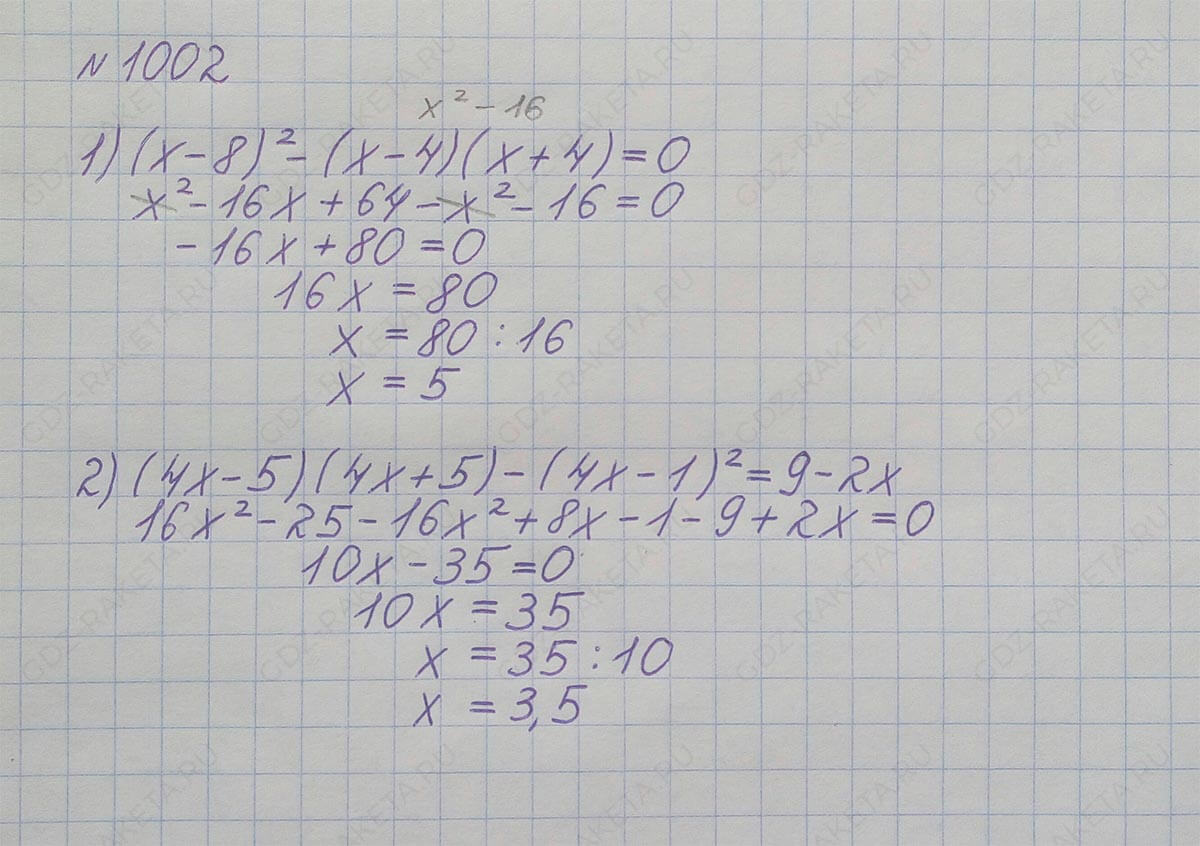 № 1002
x² - 16
1) (x - 8)² - (x - 4)(x + 4) = 0
x² - 16x + 64 - x² - 16 = 0
- 16x + 80 = 0
16x = 80
x = 80 : 16
x = 5
2) (4x - 5)(4x + 5) - (4x - 1)² = 9 - 2x
16x² - 25 - 16x² + 8x - 1 - 9 + 2x = 0
10x - 35 = 0
10x = 35
x = 35 : 10
x = 3,5
GDZ-RAKETA.RU